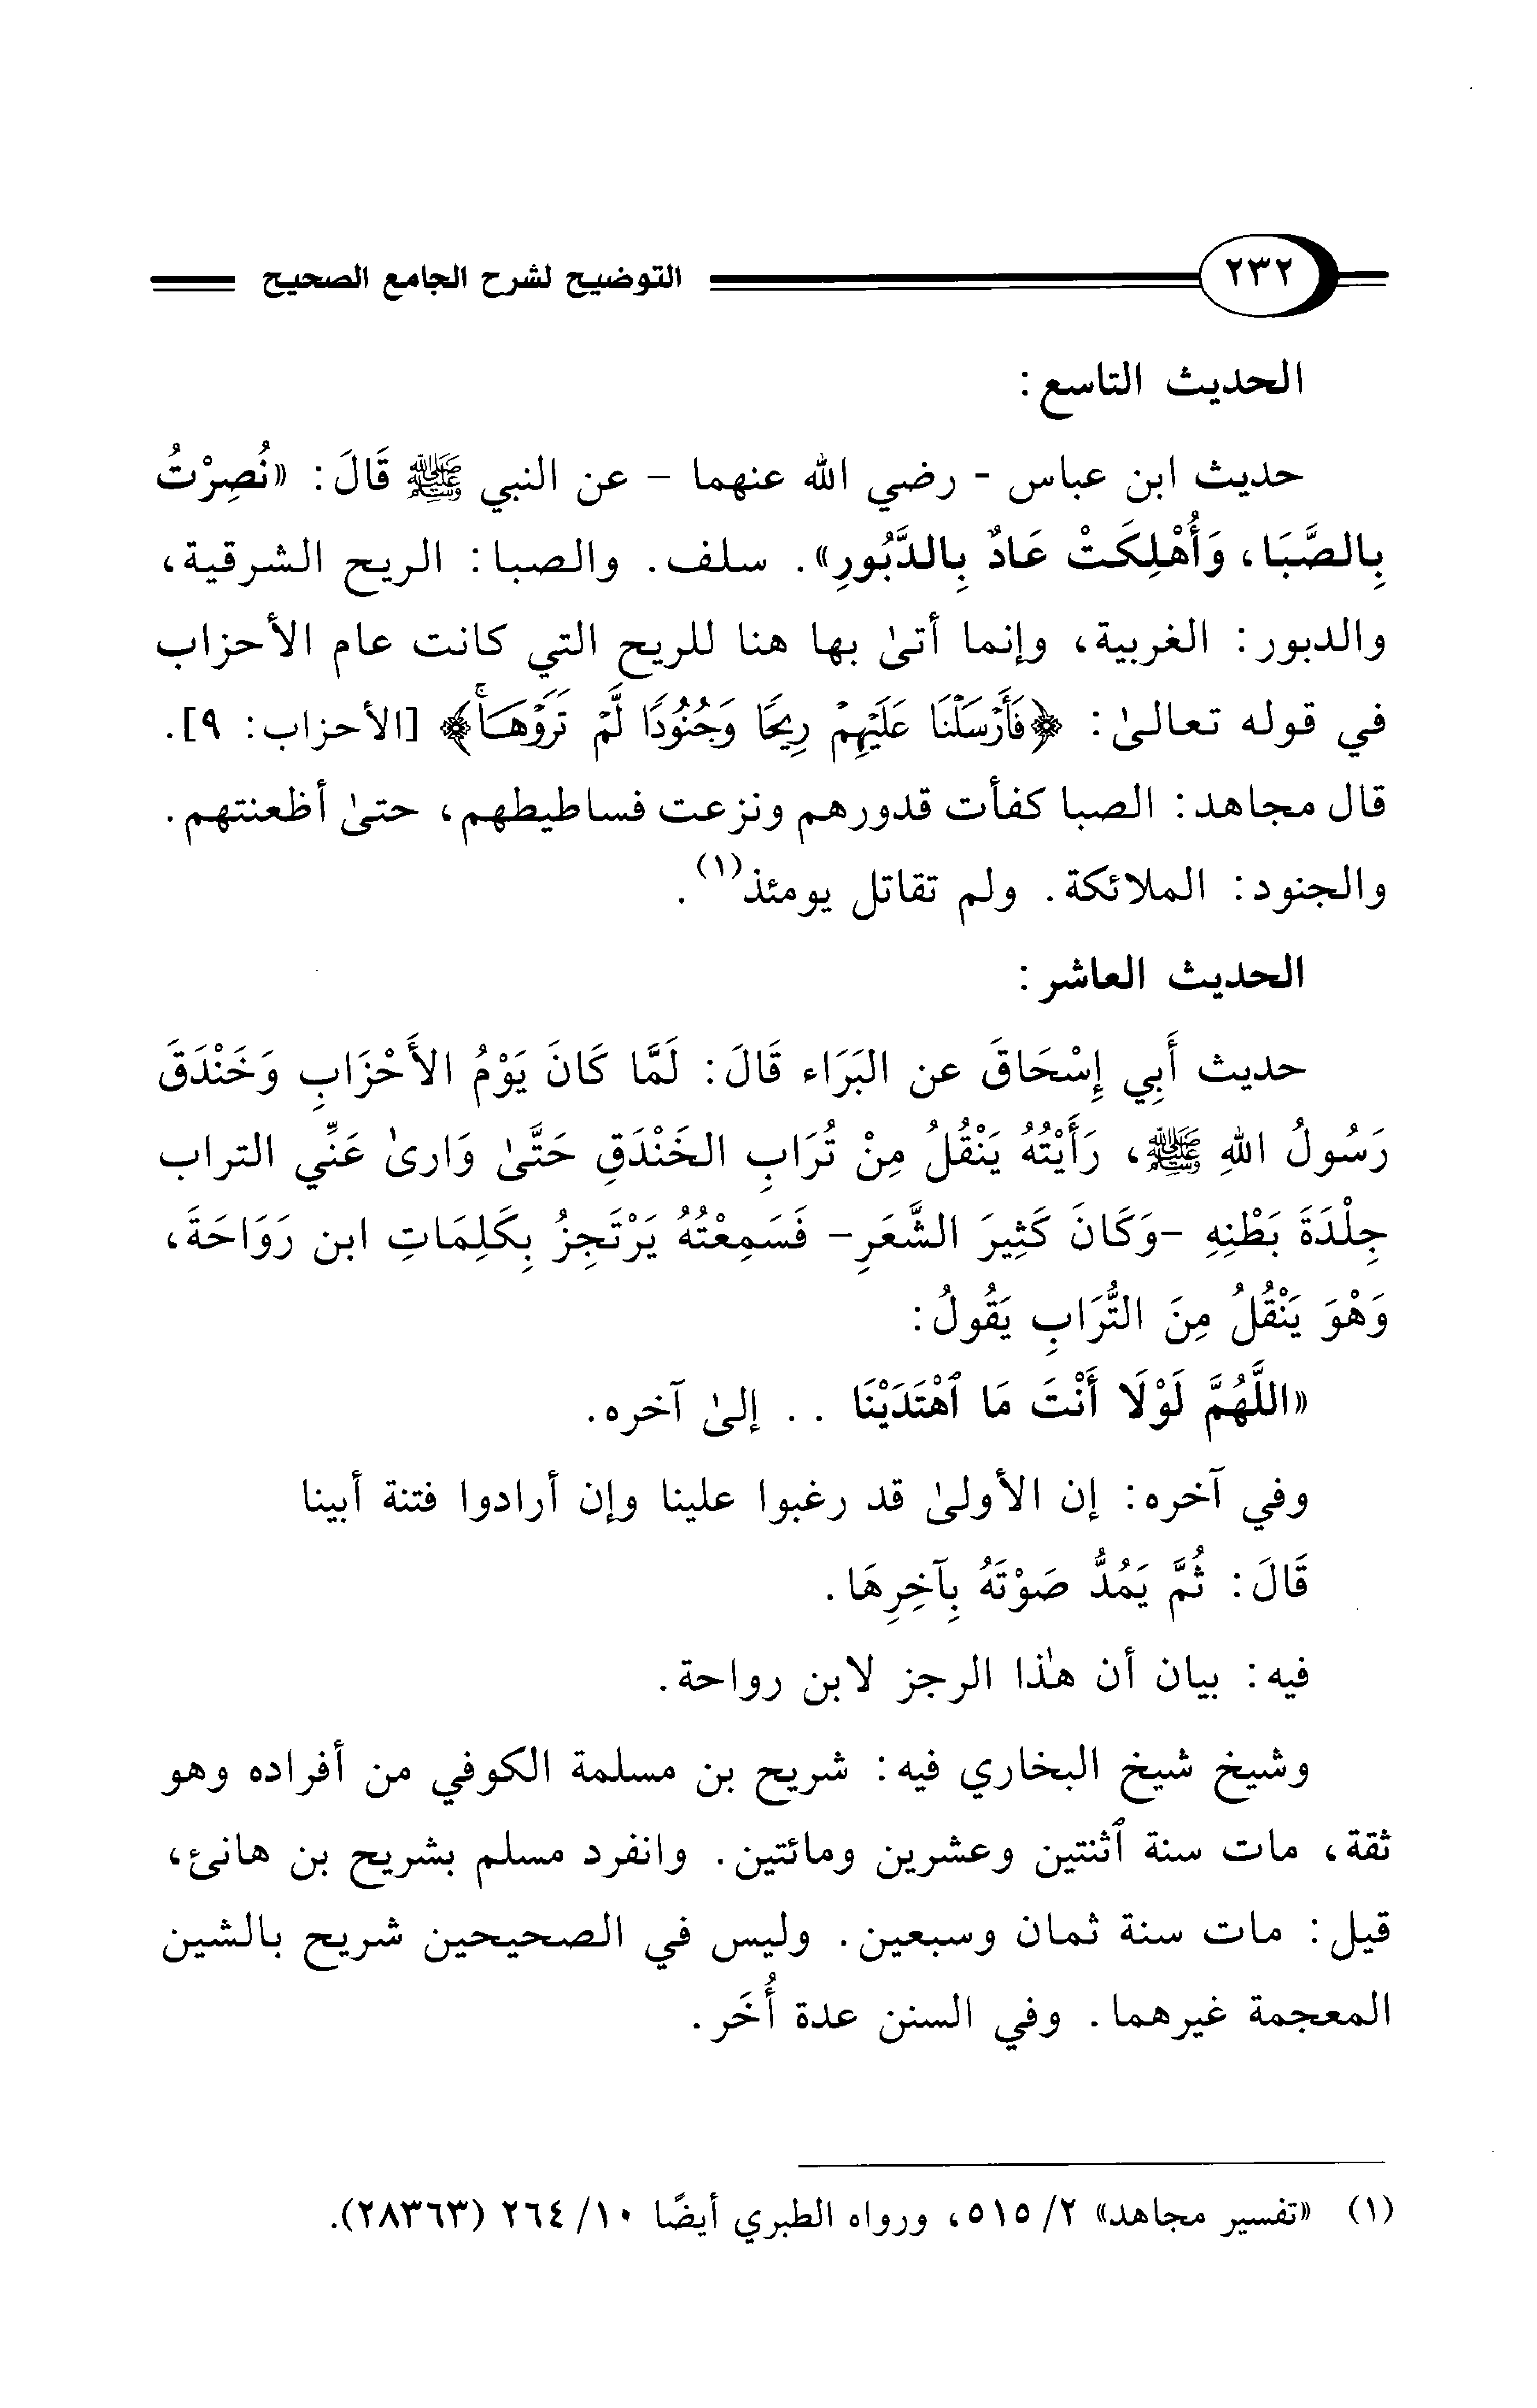 ٢٣٢ التوضيح لشرح الجامع الصحيح
الحديث التاسع:
حديث ابن عباس - رضي الله عنهما - عن النبي ﷺ قَالَ: «نُصِرْتُ
بِالصَّبَا، وَأُهْلِكَتْ عَادٌ بِالدَّبُورِ». سلف. والصبا: الريح الشرقية،
والدبور: الغربية، وإنما أتىٰ بها هنا للريح التي كانت عام الأحزاب
في قوله تعالىٰ: ﴿فَأَرْسَلْنَا عَلَيْهِمْ رِيحًا وَجُنُودًا لَّمْ تَرَوْهَاۚ﴾ [الأحزاب: ٩].
قال مجاهد: الصبا كفأت قدورهم ونزعت فساطيطهم، حتىٰ أظعنتهم.
والجنود: الملائكة. ولم تقاتل يومئذ(١).
الحديث العاشر:
حديث أَبِي إِسْحَاقَ عن البَرَاء قَالَ: لَمَّا كَانَ يَوْمُ الأَحْزَابِ وَخَنْدَقَ
رَسُولُ اللهِ ﷺ، رَأَيْتُهُ يَنْقُلُ مِنْ تُرَابِ الخَنْدَقِ حَتَّىٰ وَارىٰ عَنِّي التراب
جِلْدَةَ بَطْنِهِ -وَكَانَ كَثِيرَ الشَّعَرِ- فَسَمِعْتُهُ يَرْتَجِزُ بِكَلِمَاتِ ابن رَوَاحَةَ،
وَهْوَ يَنْقُلُ مِنَ التُّرَابِ يَقُولُ:
«اللَّهُمَّ لَوْلَا أَنْتَ مَا ٱهْتَدَيْنَا .. إلىٰ آخره.
وفي آخره: إن الأولىٰ قد رغبوا علينا وإن أرادوا فتنة أبينا
قَالَ: ثُمَّ يَمُدُّ صَوْتَهُ بِآخِرِهَا.
فيه: بيان أن هٰذا الرجز لابن رواحة.
وشيخ شيخ البخاري فيه: شريح بن مسلمة الكوفي من أفراده وهو
ثقة، مات سنة ٱثنتين وعشرين ومائتين. وانفرد مسلم بشريح بن هانئ،
قيل: مات سنة ثمان وسبعين. وليس في الصحيحين شريح بالشين
المعجمة غيرهما. وفي السنن عدة أُخَر.
(١) «تفسير مجاهد» ٢/ ٥١٥، ورواه الطبري أيضًا ١٠/ ٢٦٤ (٢٨٣٦٣).